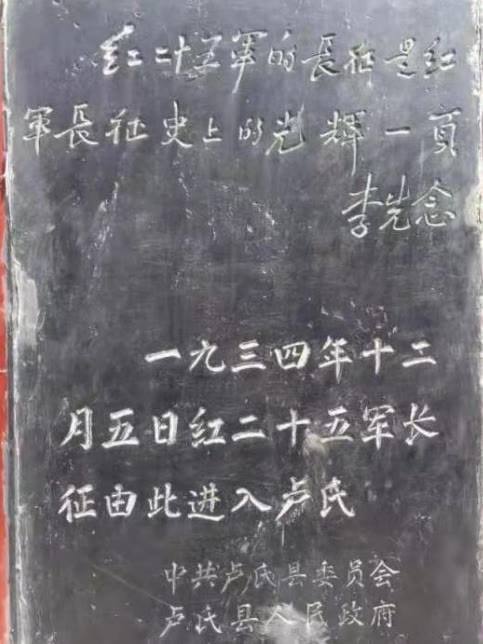 红二十五軍的長征是红
軍長征史上的光輝一頁
李先念
一九三四年十二
月五日红二十五军长
征由此进入卢氏
中共卢氏县委员会
卢氏县人民政府